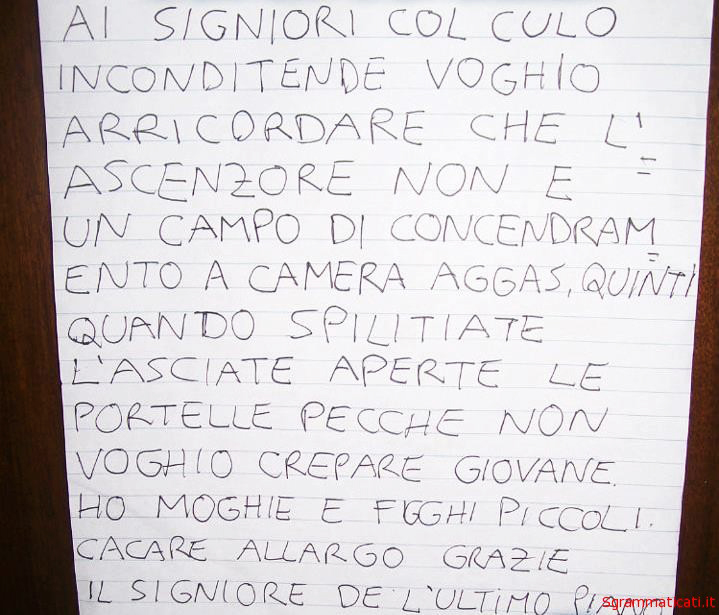 AI SIGNIORI COL CULO
INCONDITENDE VOGHIO
ARRICORDARE CHE L'=
ASCENZORE NON E
UN CAMPO DI CONCENDRAM=
ENTO A CAMERA AGGAS, QUINTI
QUANDO SPILITIATE
L'ASCIATE APERTE LE
PORTELLE PECCHE NON
VOGHIO CREPARE GIOVANE.
HO MOGHIE E FIGGHI PICCOLI.
CACARE ALLARGO GRAZIE
IL SIGNIORE DE L'ULTIMO PIANO
Sgrammaticati.it